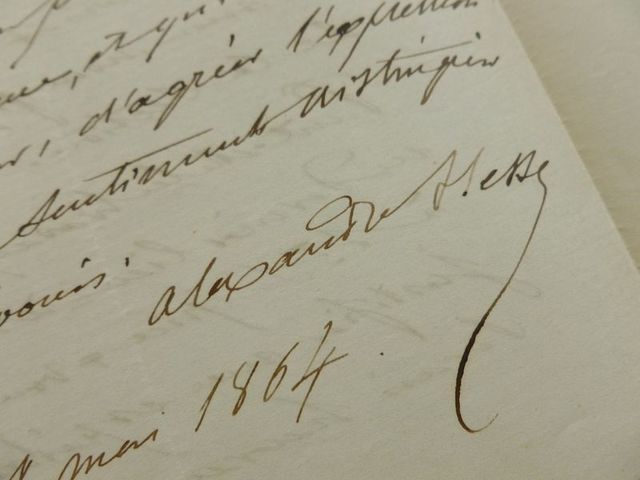 , et qui
, d'agréer l'expression
sentiments distingués
Alexandre Hesse
mai 1864.